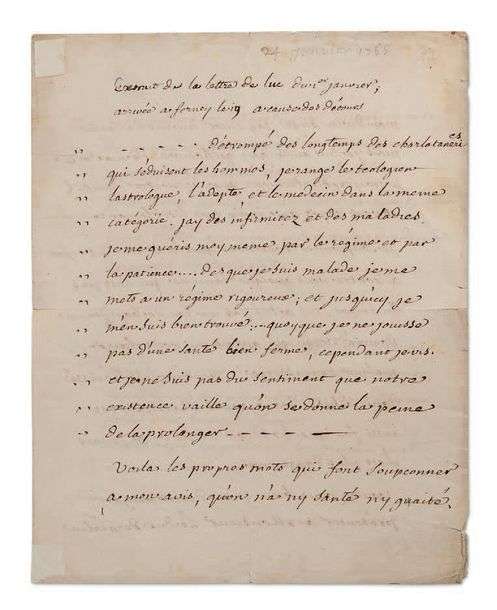 24 1765
l'extrait de la lettre de luc du 1er janvier,
arrivée a ferney le 19 a cause des détours
,, - - - - - détrompé des longtemps des charlataneries
,, qui séduisent les hommes, je range le teologien
,, l'astrologue, l'adepte, et le médecin dans la meme
,, catégorie. jay des infirmitez et des maladies
,, je me guéris moy meme par le régime et par
,, la patience.... des que je suis malade je me
,, mets a un régime rigoureux, et jusqu'icy je
,, m'en suis bien trouvé... quoyque je ne jouisse
,, pas d'une santé bien ferme, cependant je vis.
,, et je ne suis pas du sentiment que notre
,, existence vaille qu'on se donne la peine
,, de la prolonger - - - - -
Voila les propres mots qui font soupconner
a mon avis, qu'on n'a ny santé ny guaité,